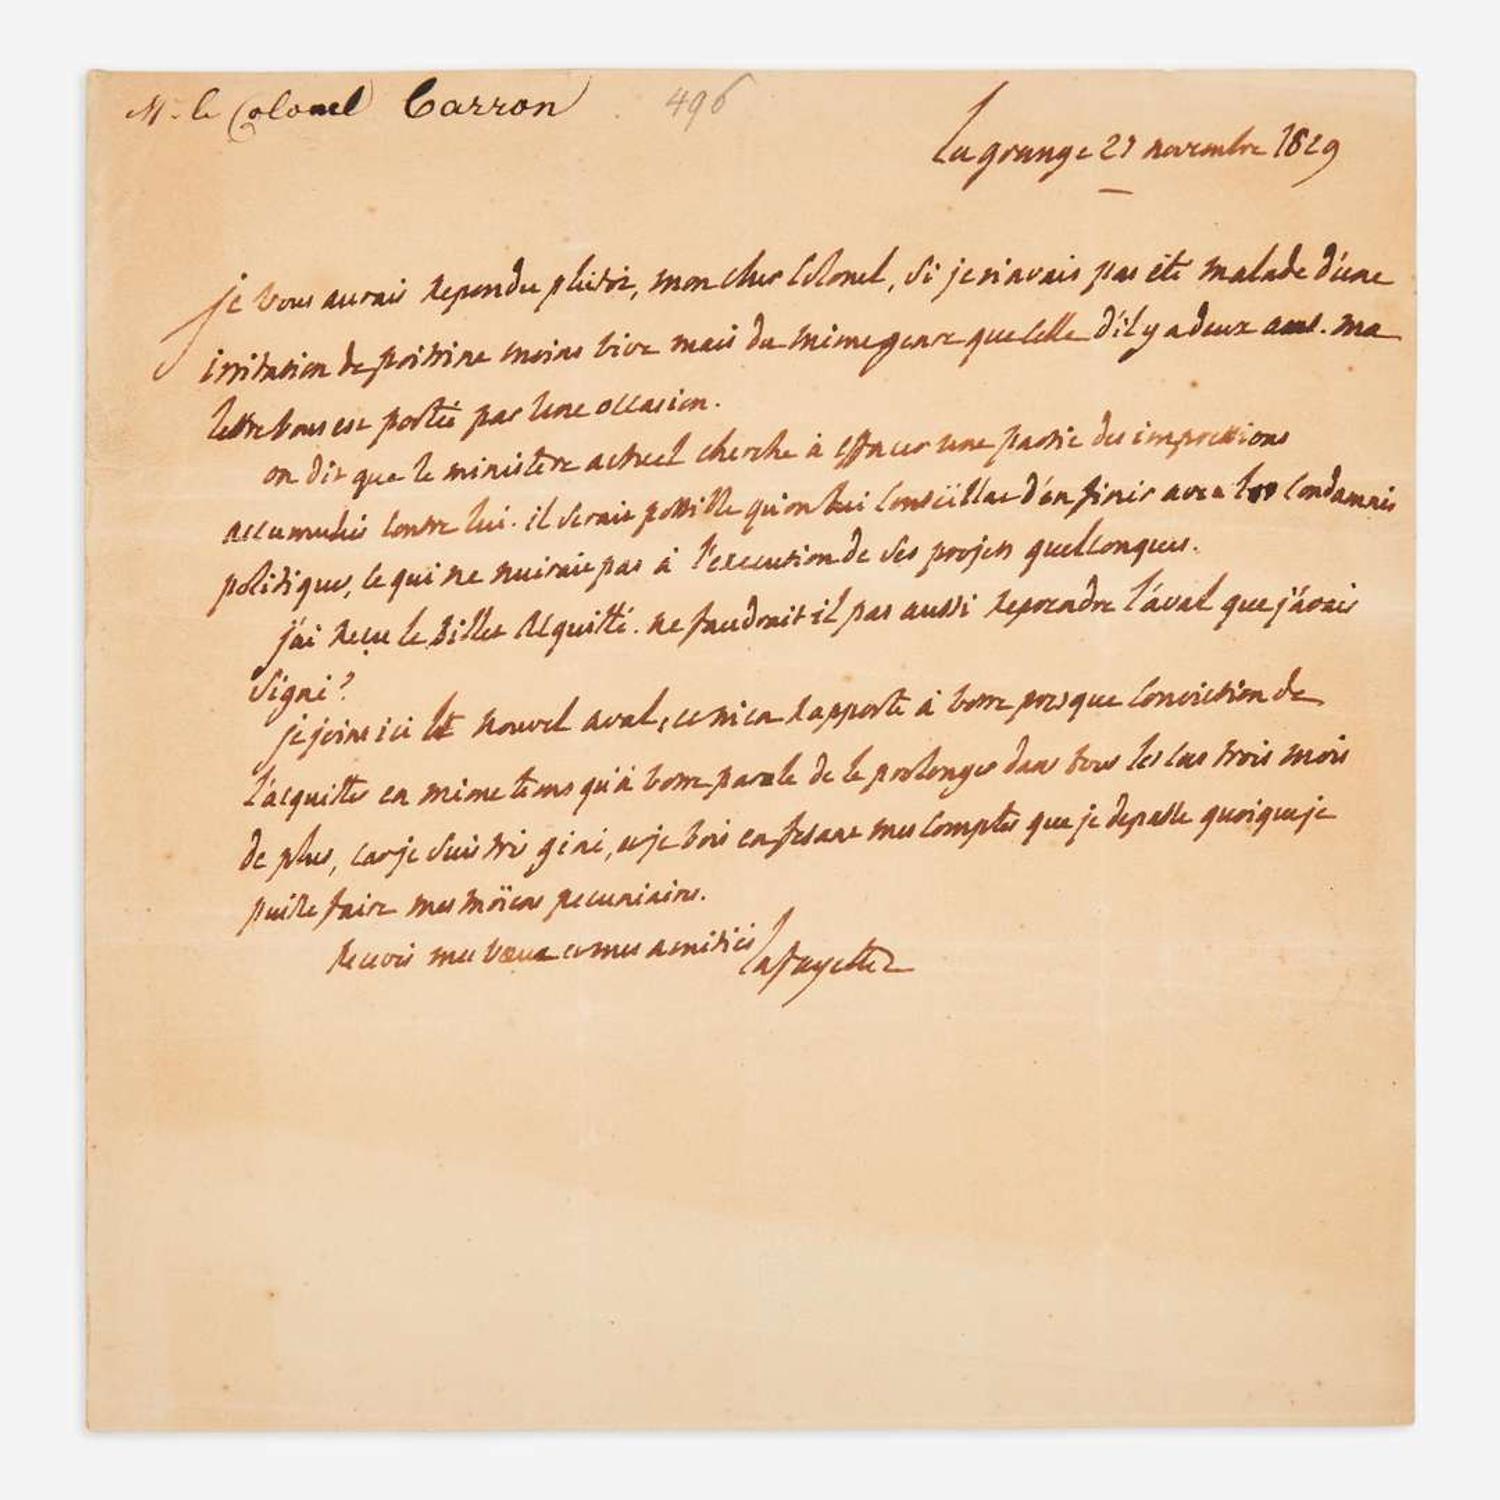 M. le Colonel Carron
496
Lagrange 27 novembre 1829
je vous aurais repondu plutot, mon cher Colonel, si je n'avais pas été malade d'une
irritation de poitrine moins vive mais du même genre que celle d'il y a deux ans. ma
lettre vous est portée par une occasion.
on dit que le ministère actuel cherche à effacer une partie des impressions
accumulées contre lui. il serait possible qu'on lui conseillat d'en finir avec les condamnés
politiques, ce qui ne nuirait pas à l'execution de ses projets quelconques.
j'ai reçu le billet acquitté. ne faudrait-il pas aussi reprendre l'aval que j'avais
signé?
je joins ici le nouvel aval; je m'en rapporte à votre presque conviction de
l'acquitter en même tems qu'à votre parole de le prolonger dans tous les cas trois mois
de plus, car je suis très gêné, et je vois en fesant mes comptes que je depasse quoique je
puisse faire mes moïens pecuniaires.
Recevés mes vœux et mes amitiés
Lafayette